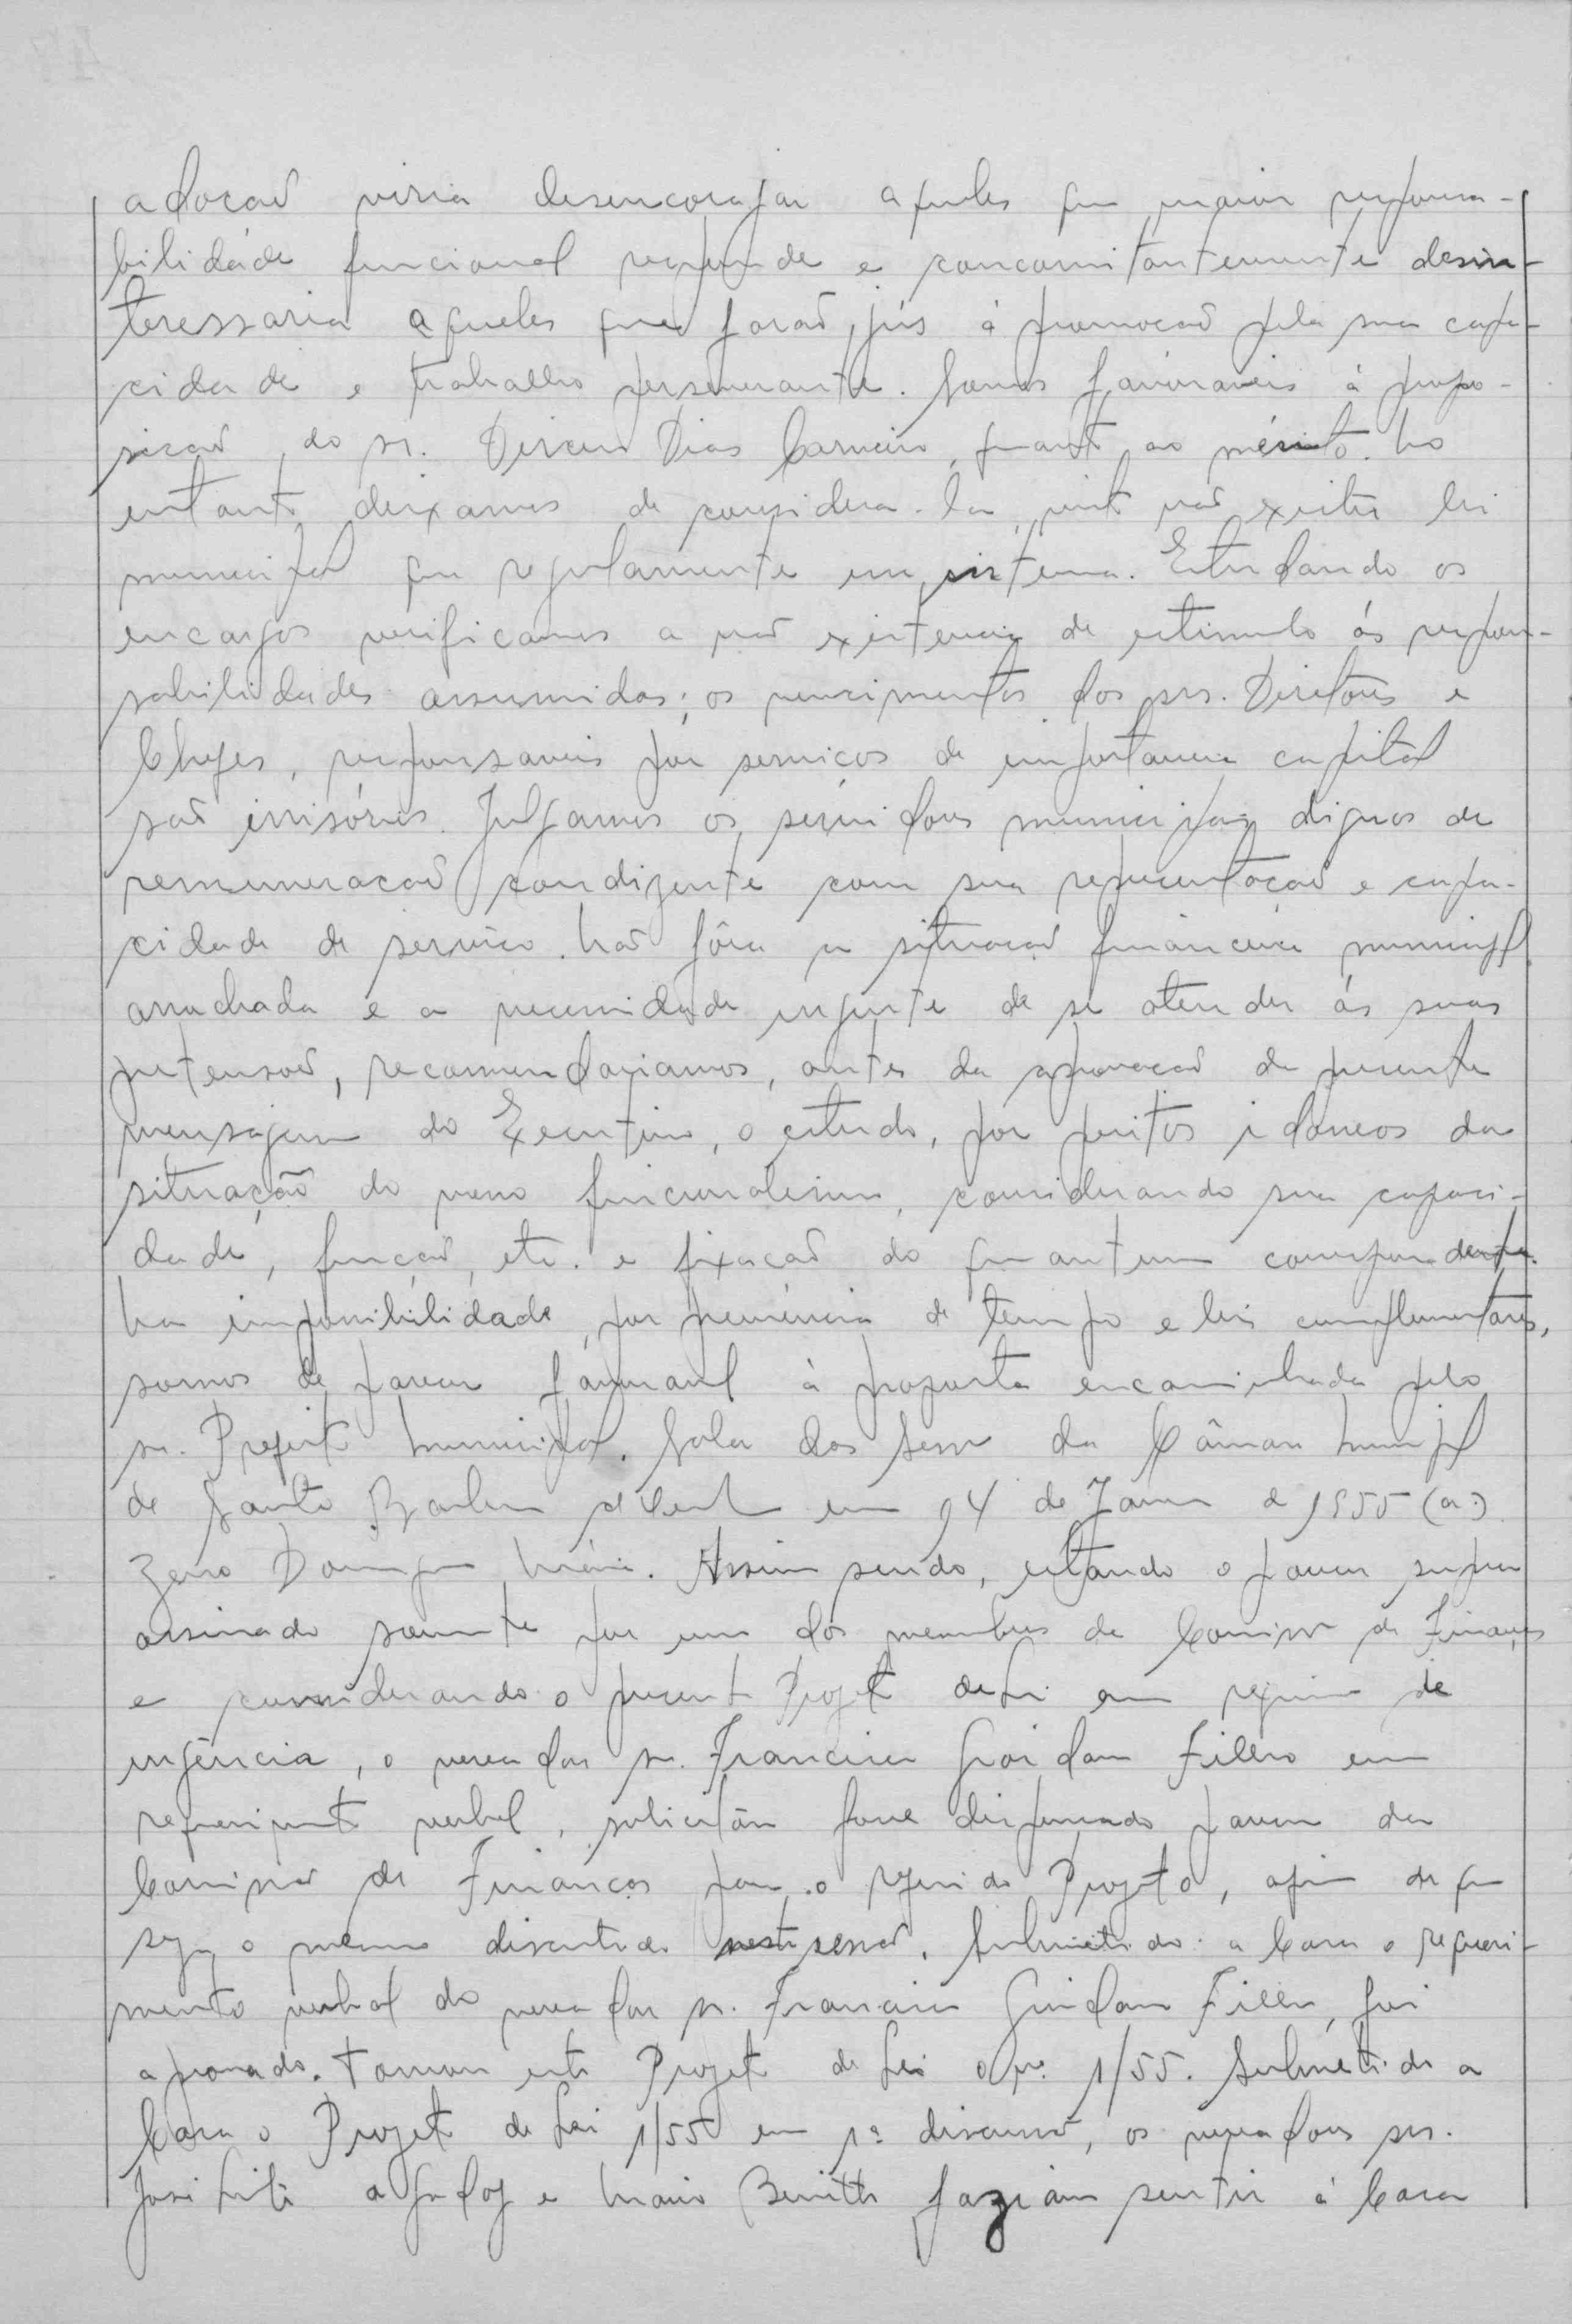 adoção viria desencorajar aqueles que maior responsa-
bilidade funcional responde e concomitantemente desin-
teressaria aqueles que farão jús á promoção pela sua capa-
cidade e trabalho perseverante. Somos favoraveis á propo-
sição do sr. Dirceu Dias Carneiro, quanto ao mérito. No
entanto deixamos de considera-la, visto não existir lei
municipal que regulamente um sistema. Estudando os
encargos verificamos a não existencia de estimulo ás respon-
sabilidades assumidas; os vencimentos dos srs. Diretores e
Chefes, responsaveis por serviços de importancia capital
são irrisórios. Julgamos os servidores municipais dignos de
remuneração condizente com sua representação e capa-
cidade de serviço. Não fôra a situação financeira municipal
arrochada e a necessidade urgente de se atender ás suas
pretensões, recomendariamos, antes da aprovação da presente
mensagem do Executivo, o estudo, por peritos idoneos da
situação do nosso funcionalismo, considerando sua capaci-
dade, função, etc. e fixação do quantum correspondente.
Na impossibilidade, por premência de tempo e leis complementares,
somos de parecer favoravel á proposta encaminhada pelo
sr. Prefeito Municipal. Sala das Sessões da Câmara Municipal
de Santa Barbara d'Oeste em 14 de Janeiro de 1955 (a.)
Zeno Domingues Maia. Assim sendo, estando o parecer supra
assinado somente por um dos membros da Comissão de Finanças
e considerando o presente Projeto de Lei em regime de
urgência, o vereador sr. Francisco Filho em
requerimento verbal, solicitára fosse dispensado parecer da
Comissão de Finanças para o referido Projeto, afim de que
seja o mesmo discutido nesta sessão. Submetido a Casa o requeri-
mento verbal do vereador sr. Francisco Filho, foi
aprovado. Tomou este Projeto de Lei o nº 1/55. Submetido a
Casa o Projeto de Lei 1/55 em 1ª discussão, os vereadores srs.
José Leite de Godoy e Mario faziam sentir á Casa